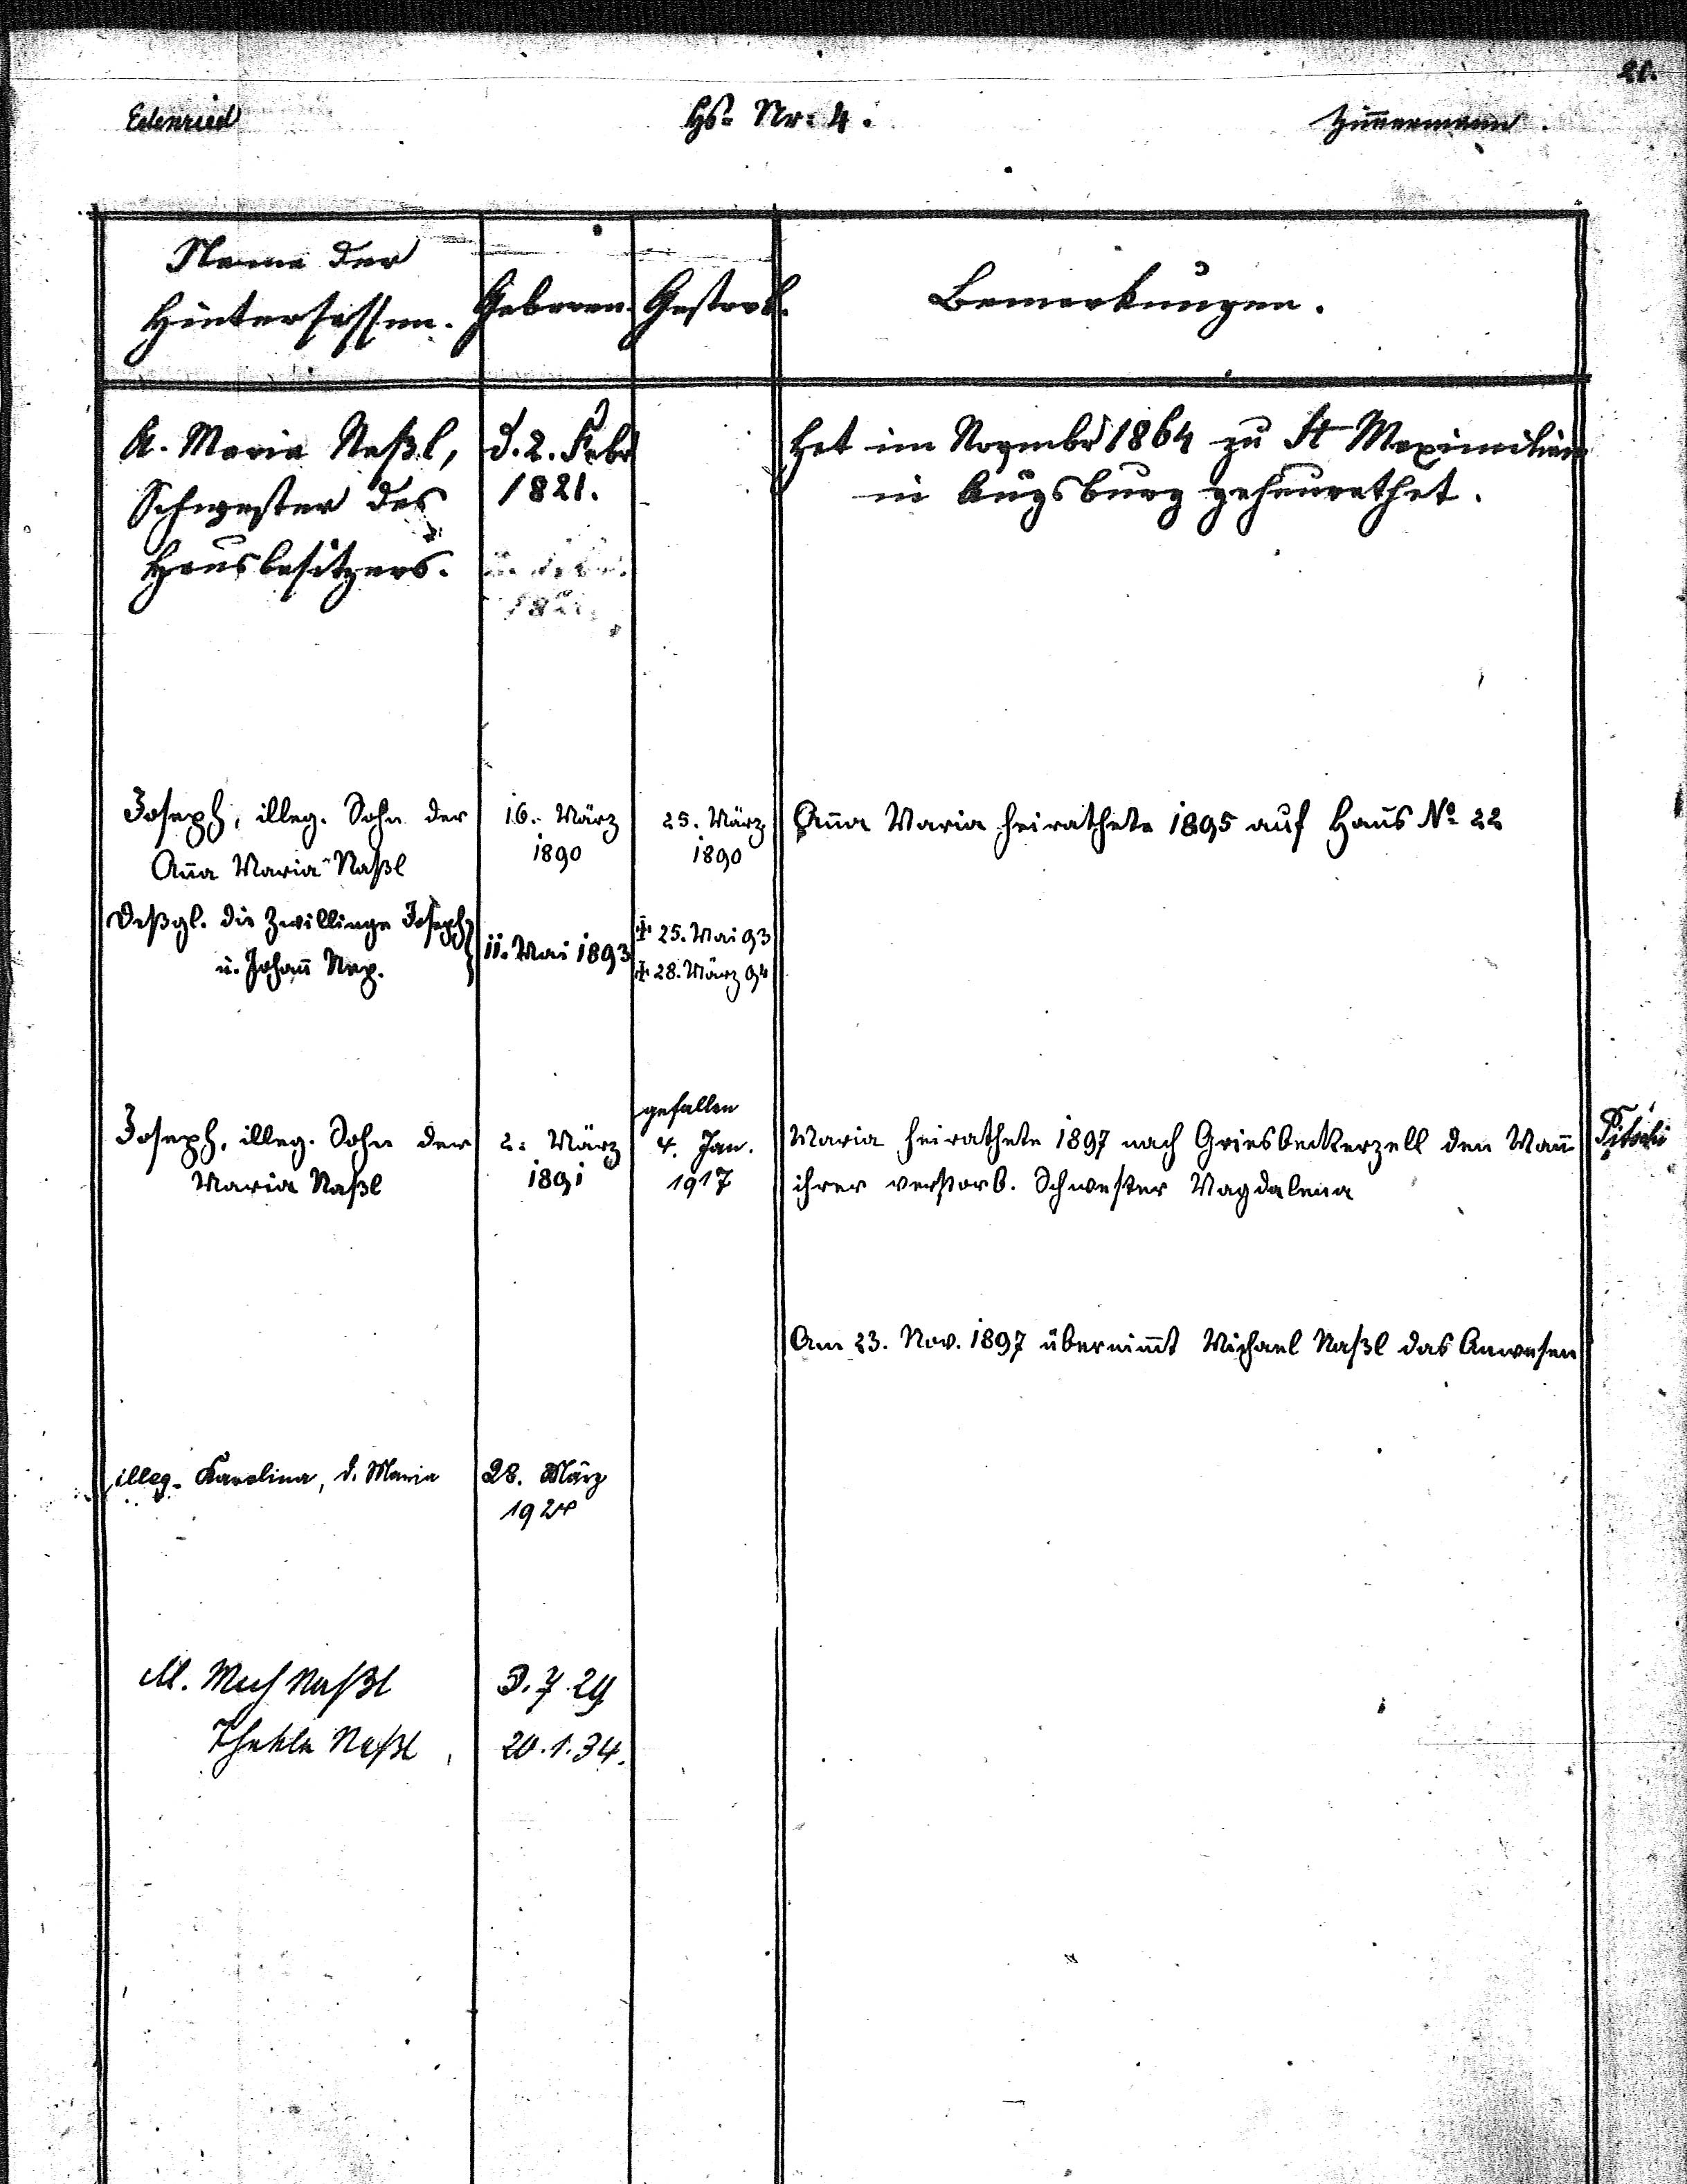 20.
Edenried
Hs- Nr: 4.
Zim̄ermann.
Name der
Hintersassen.
Geboren.
Gestorb.
Bemerkungen.
A. Maria Naßl,
Schwester des
Hausbesitzers.
d. 2. Febr
1821.
hat im Novembr 1864 zu St Maximilian
in Augsburg geheurathet.
Joseph, illeg. Sohn der
An̄a Maria Naßl
16. März
1890
25. März
1890
An̄a Maria heirathete 1895 auf Haus No 22
Deßgl. die Zwillinge Joseph
u. Johan̄ Nep.
11. Mai 1893
✝ 25. Mai 93
✝ 28. März 94
Joseph, illeg. Sohn der
Maria Naßl
2. März
1891
gefallen
4. Jan.
1917
Maria heirathete 1897 nach Griesbeckerzell den Man̄
ihrer verstorb. Schwester Magdalena
Am 23. Nov. 1897 übernim̄t Michael Naßl das Anwesen
illeg. Karolina, d. Maria
28. März
1924
M. Naßl
3.7.29
Thekla Naßl
20.1.34.